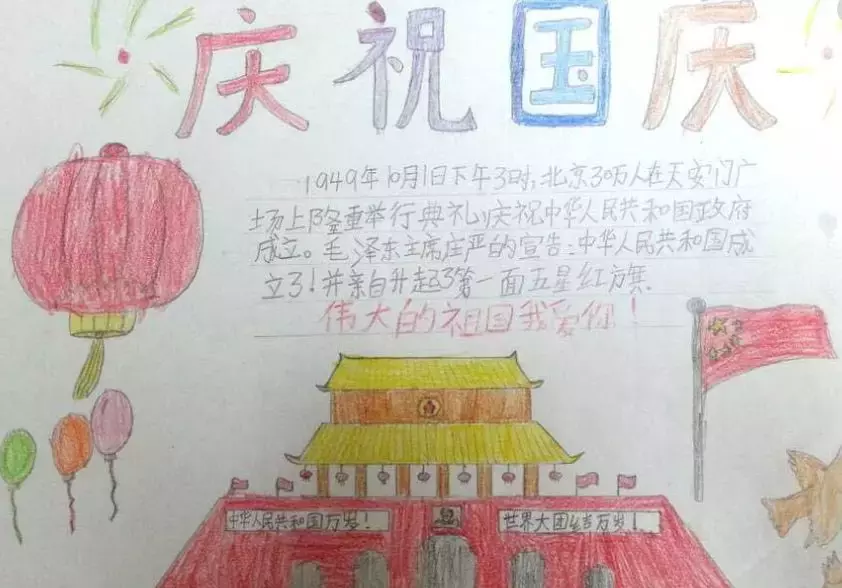 庆祝国庆
1949年10月1日下午3时,北京30万人在天安门广
场上隆重举行典礼,庆祝中华人民共和国政府
成立。毛泽东主席庄严的宣告:中华人民共和国成
立了!并亲自升起了第一面五星红旗.
伟大的祖国我爱你!
中华人民共和国万岁!
世界大团结万岁!